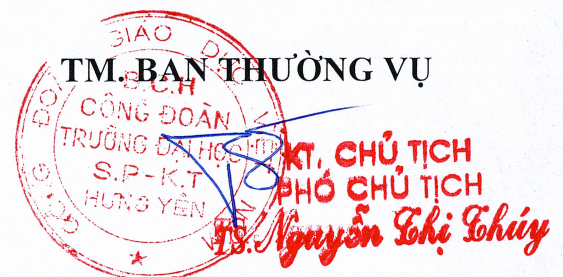 TM. BAN THƯỜNG VỤ
CÔNG ĐOÀN GIÁO DỤC VIỆT NAM
B.C.H
CÔNG ĐOÀN
TRƯỜNG ĐẠI HỌC
S.P-K.T
HƯNG YÊN
KT. CHỦ TỊCH
PHÓ CHỦ TỊCH
TS. Nguyễn Thị Thúy